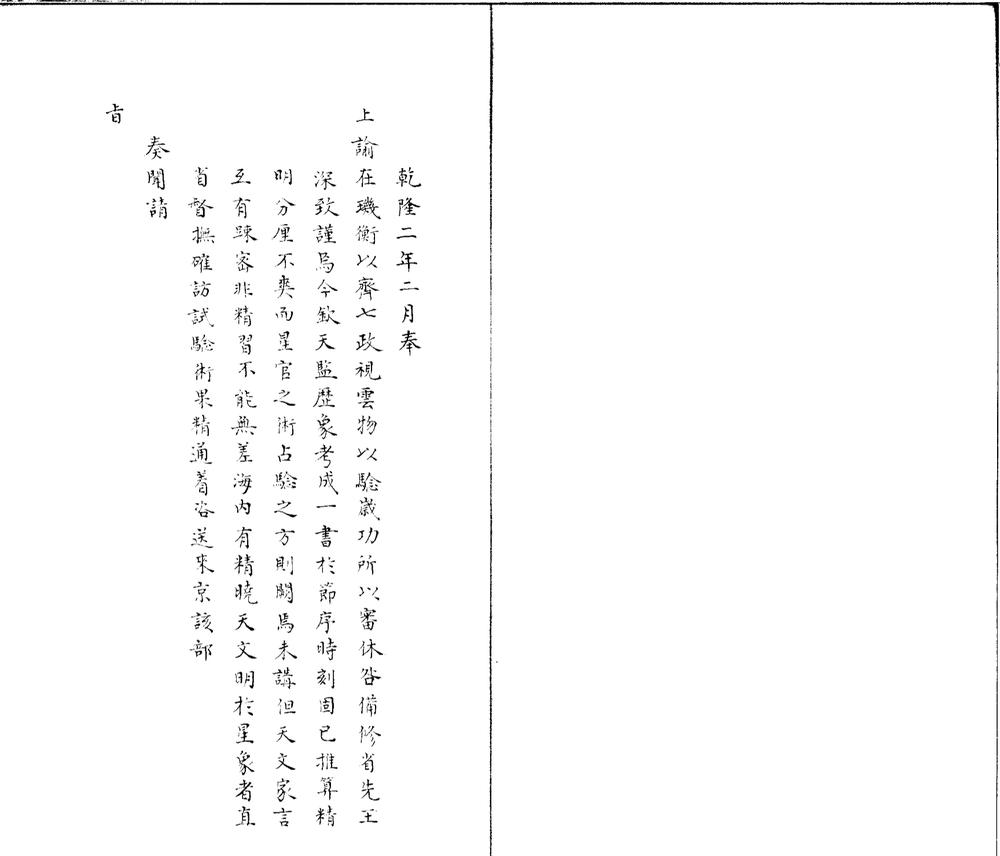 乾隆二年二月奉
上諭在璣衡以齊七政視雲物以驗歲功所以審休咎備修省先王
深致謹焉今欽天監歴象考成一書於節序時刻固已推算精
明分厘不爽而星官之術占驗之方則闕焉未講但天文家言
互有踈宻非精習不能無差海内有精曉天文明於星象者直
省督撫確訪試驗術果精通着咨送來京該部
奏聞請
旨